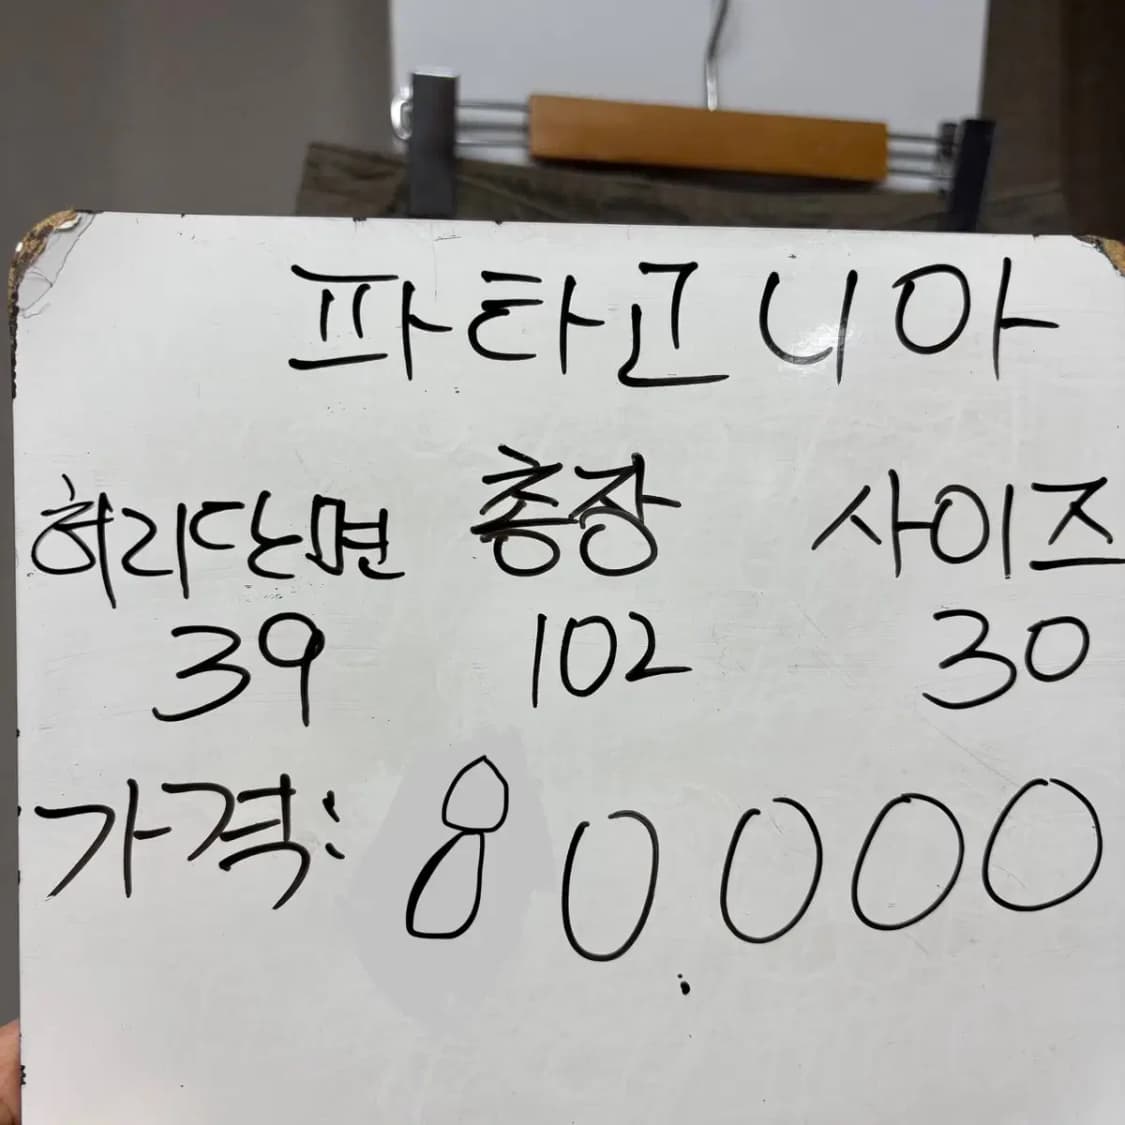 파타고니아
허리단면 총장 사이즈
39 102 30
가격: 80.000